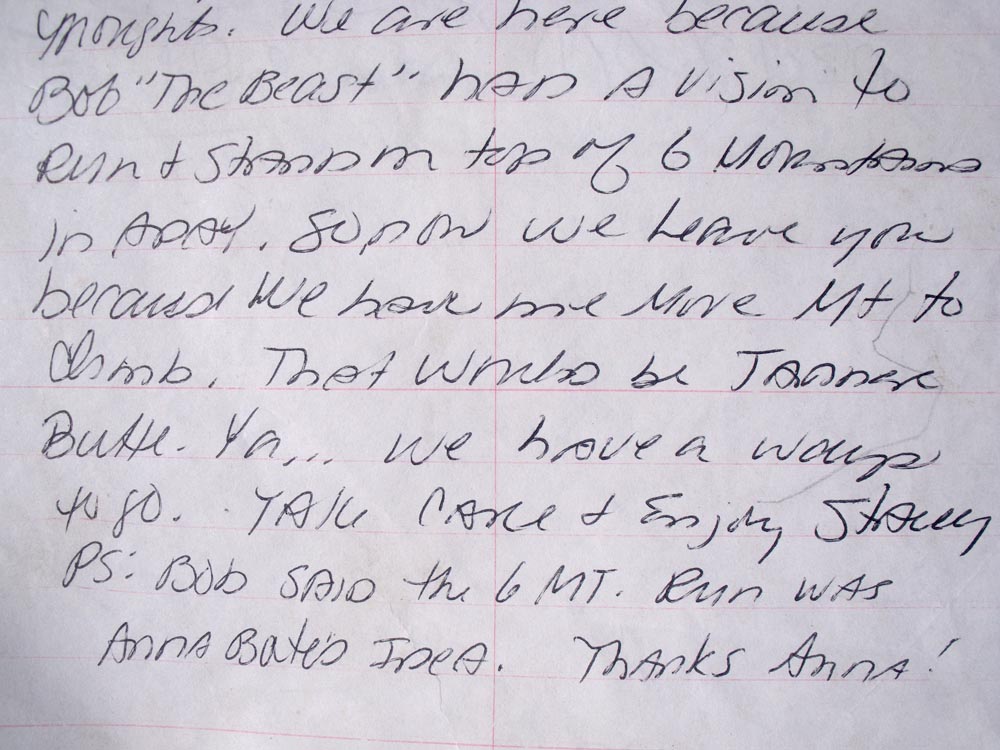 thoughts. We are here because
Bob "The Beast" had a vision to
Run + Stand on top of 6 Mountains
in A DAY. So now we leave you
because We have one More Mt to
Climb. That would be Tanner
Butte. Ya... we have a ways
to go. TAke CARE + Enjoy Stacey
PS: Bob SAID the 6 MT. Run WAS
Anna Bates Idea. THANKS Anna!